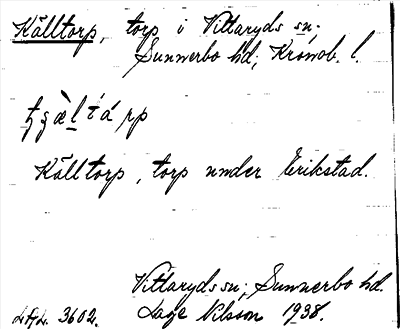 Källtorp, torp i Vittaryds sn;
Sunnerbo hd; Kronob. l.
Källtorp, torp under Erikstad.
Vittaryds sn; Sunnerbo hd.
3602. Lage Nilsson 1938.